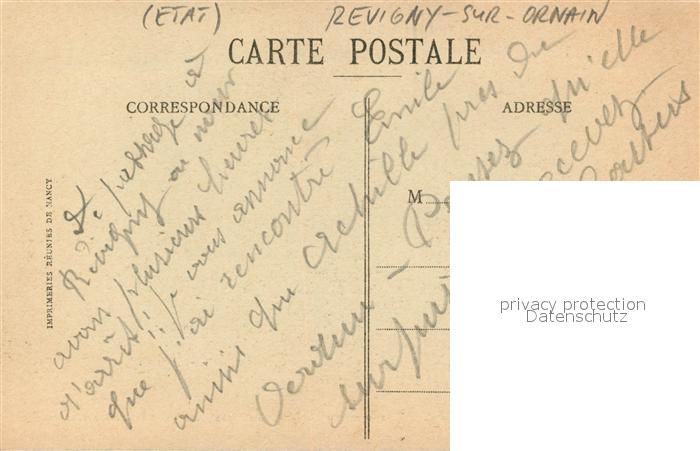 (ETAT) REVIGNY-SUR-ORNAIN
CARTE POSTALE
CORRESPONDANCE
ADRESSE
M
IMPRIMERIES RÉUNIES DE NANCY
De passage à
Révigny où nous
avons plusieurs heures
d'arrêt, je vous annonce
que j'ai rencontré Emile
ainsi que Achille près de
Verdun - Pensez qu'elle
surprise
recevez
privacy protection
Datenschutz